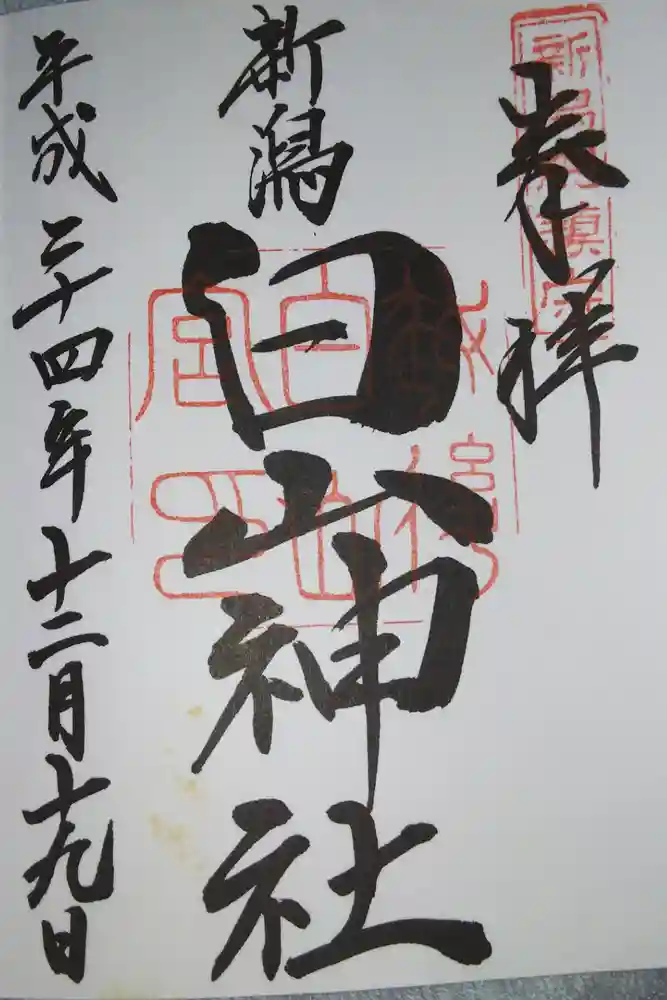 奉拝
新潟総鎮守
新潟
白山神社
越後
白山
宮印
平成二十四年十二月十九日